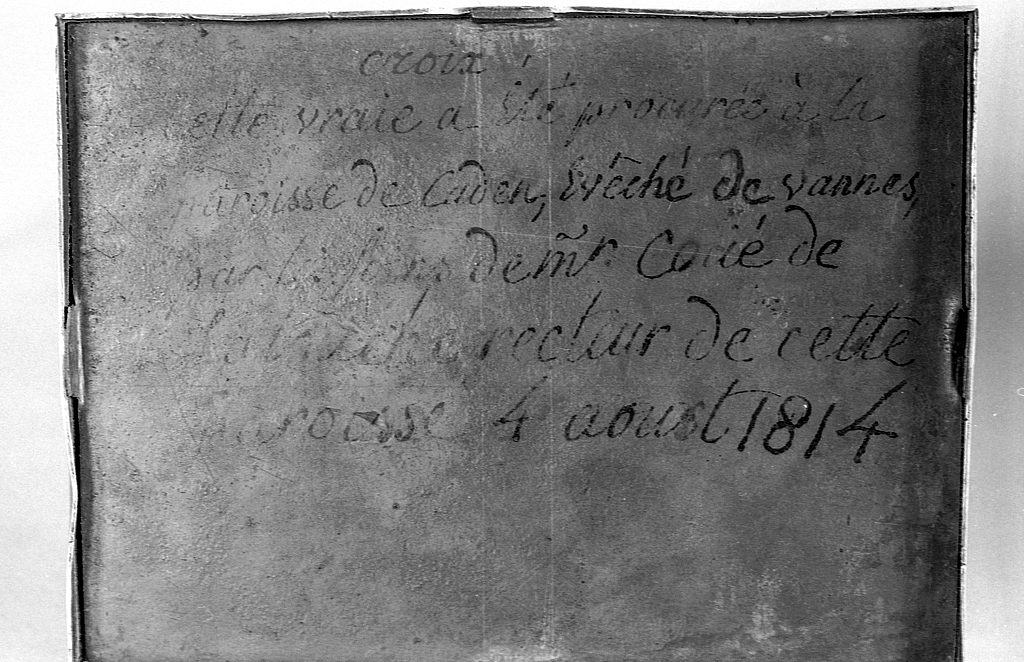 croix
cette vraie a été procurée à la
paroisse de Caden, Évêché de vannes,
par les soins de mr. Corié de
recteur de cette
paroisse 4 aoust 1814